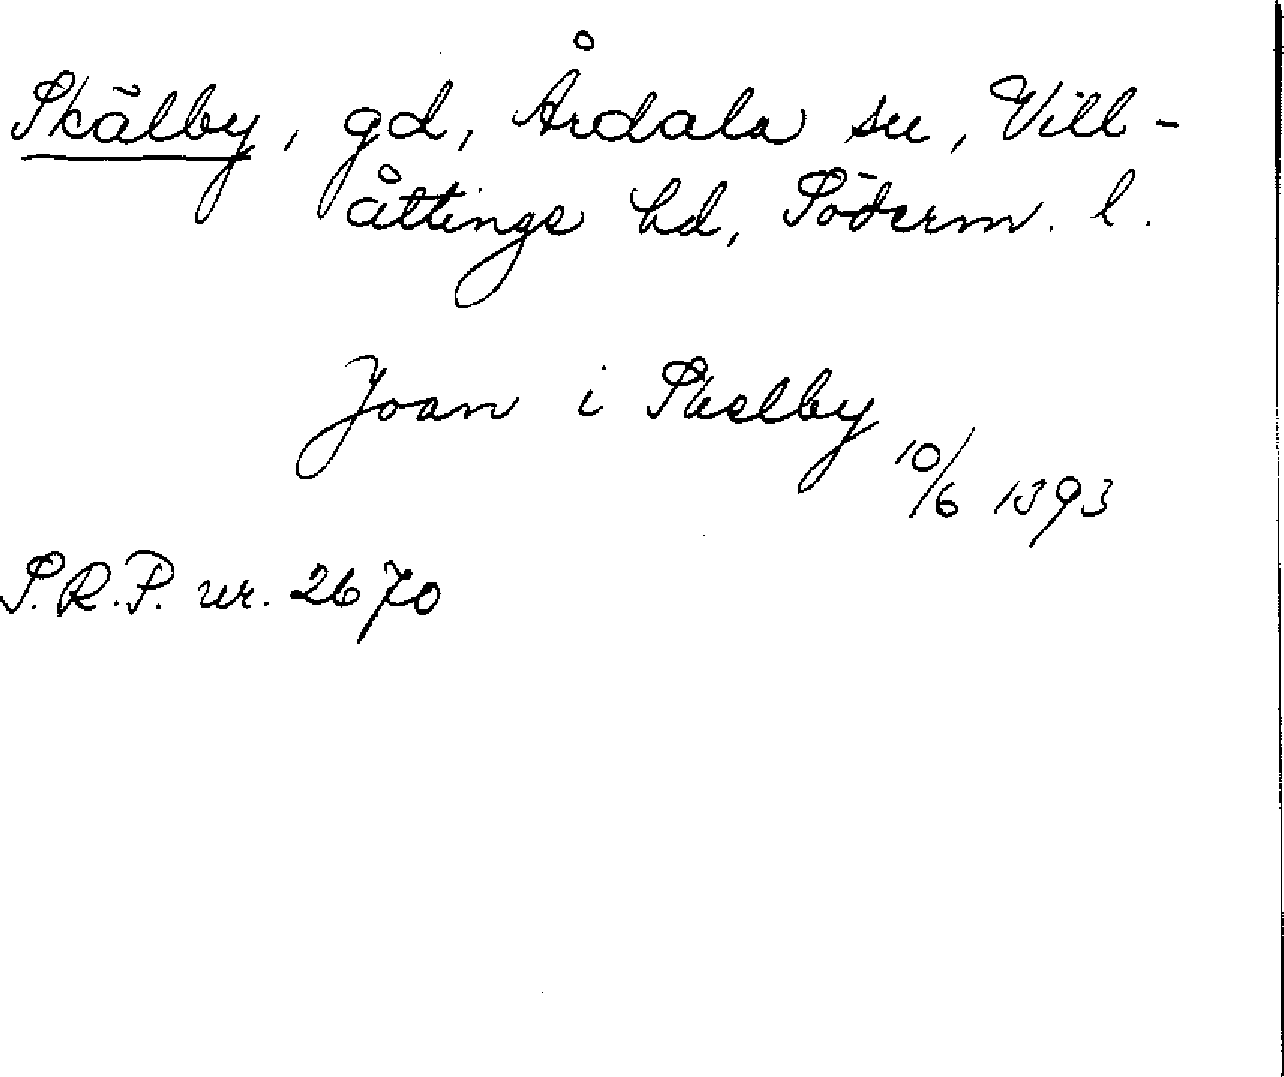 Skälby, gd, Årdala sn, Vill-
åttings hd, Söderm. l.
Joan i Skelby
10/6 1393
S.R.P. nr. 2670